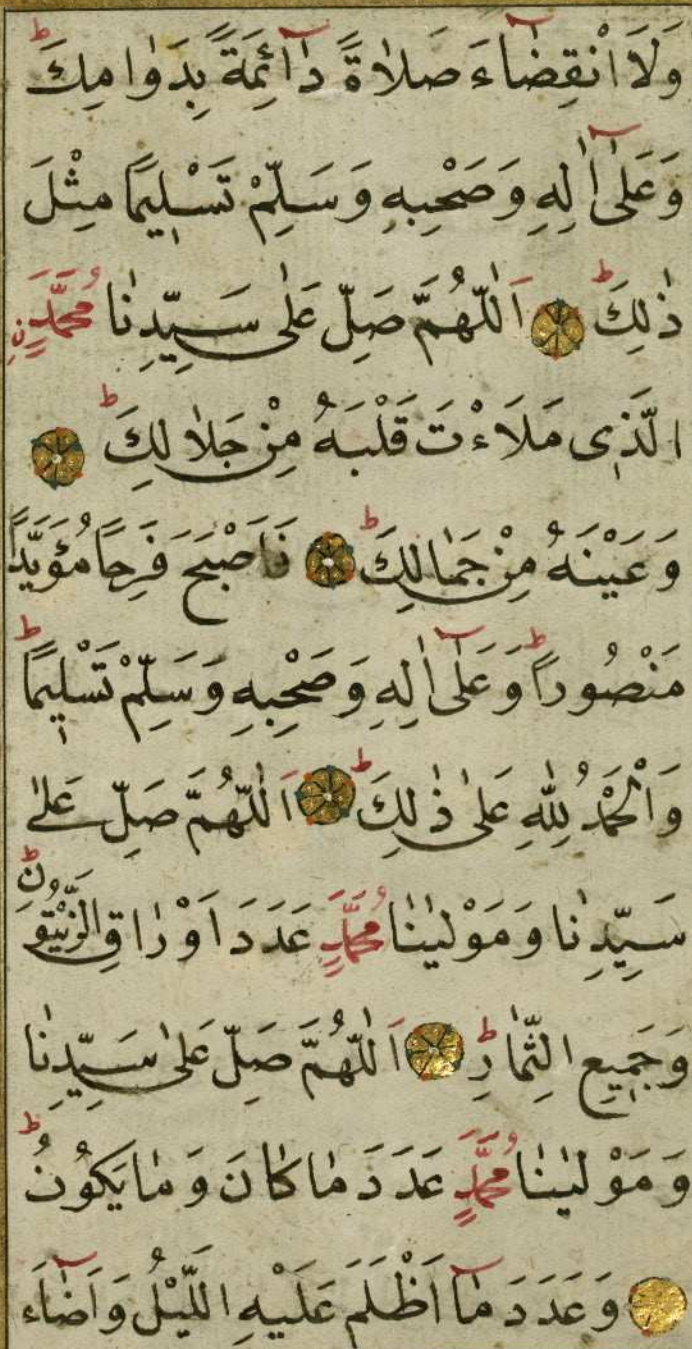 وَلَا انْقِضَآءَ صَلَاةً دَآئِمَةً بِدَوَامِكَ ط
وَعَلٰىٓ اٰلِهِ وَصَحْبِهِ وَسَلِّمْ تَسْلِيمًا مِثْلَ
ذٰلِكَ ط اَللّٰهُمَّ صَلِّ عَلٰى سَيِّدِنَا مُحَمَّدٍنِ
الَّذِى مَلَاءْتَ قَلْبَهُ مِنْ جَلَالِكَ ط
وَعَيْنَهُ مِنْ جَمَالِكَ ط فَاَصْبَحَ فَرِحًا مُؤَيَّدًا
مَنْصُورًا ط وَعَلٰىٓ اٰلِهِ وَصَحْبِهِ وَسَلِّمْ تَسْلِيمًا ط
وَالْحَمْدُ لِلّٰهِ عَلٰى ذٰلِكَ ط اَللّٰهُمَّ صَلِّ عَلٰى
سَيِّدِنَا وَمَوْلٰينَا مُحَمَّدٍ عَدَدَ اَوْرَاقِ الزَّيْتُونِ ط
وَجَمِيعِ الثِّمَارِ ط اَللّٰهُمَّ صَلِّ عَلٰى سَيِّدِنَا
وَمَوْلٰينَا مُحَمَّدٍ عَدَدَ مَا كَانَ وَمَا يَكُونُ ط
وَعَدَدَ مَآ اَظْلَمَ عَلَيْهِ اللَّيْلُ وَاَضَآءَ